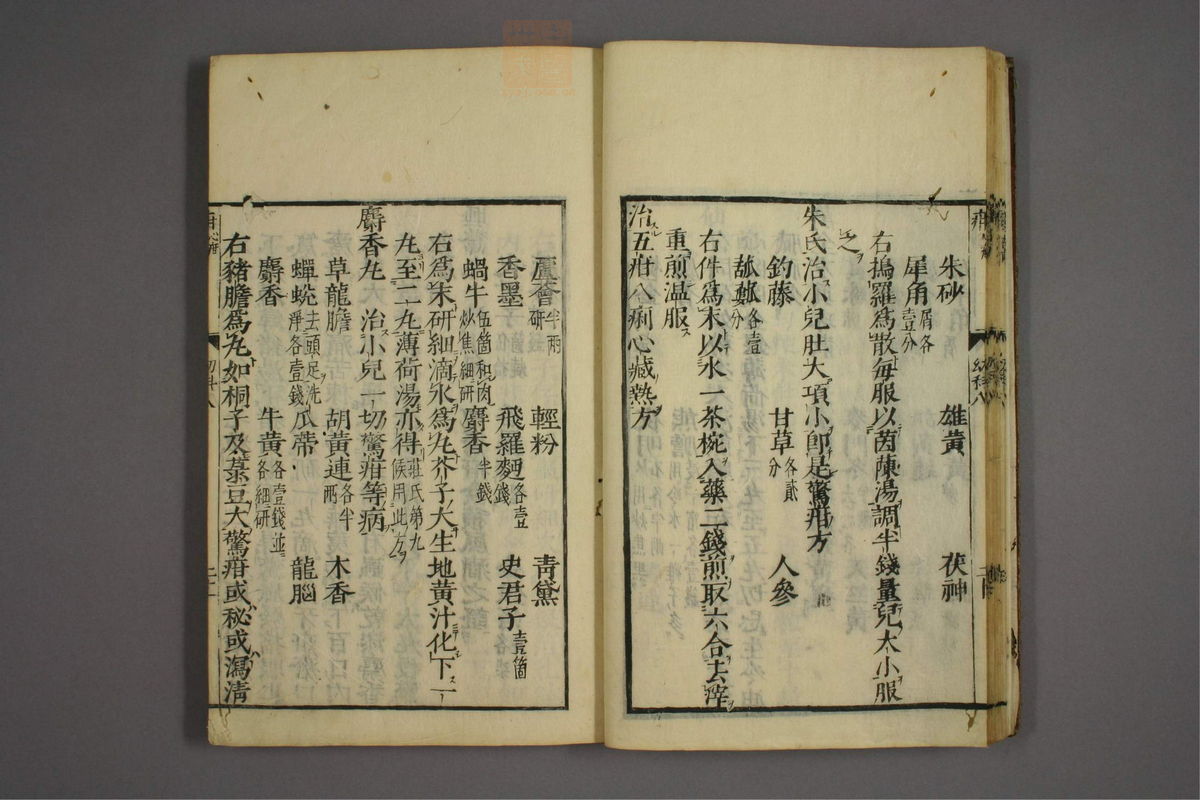 朱砂　雄黃　茯神
犀角屑各壹分
右擣羅爲散每服以茵蔯湯調半錢量兒大小服
之
朱氏治小兒肚大項小卽是驚疳方
釣藤　甘草各貳分　人參
各壹分
右件爲末以水一茶椀入藥二錢煎取六合去滓
重煎温服
治五疳八痢心臟熱方
蘆薈半兩研　輕粉　靑黛
香墨　飛羅麪各壹錢　史君子壹箇
蝸牛伍箇和肉炒焦細研　麝香半錢
右爲末研細滴水爲丸芥子大生地黃汁化下一
丸至二丸薄荷湯亦得莊氏第九候用此方
麝香丸　治小兒一切驚疳等病
草龍膽　胡黃連各半兩　木香
蟬蛻去頭足洗淨各壹錢　瓜蔕　龍腦
麝香　牛黃各壹錢並各細研
右豬膽爲丸如桐子及菉豆大驚疳或秘或瀉淸
幼科八